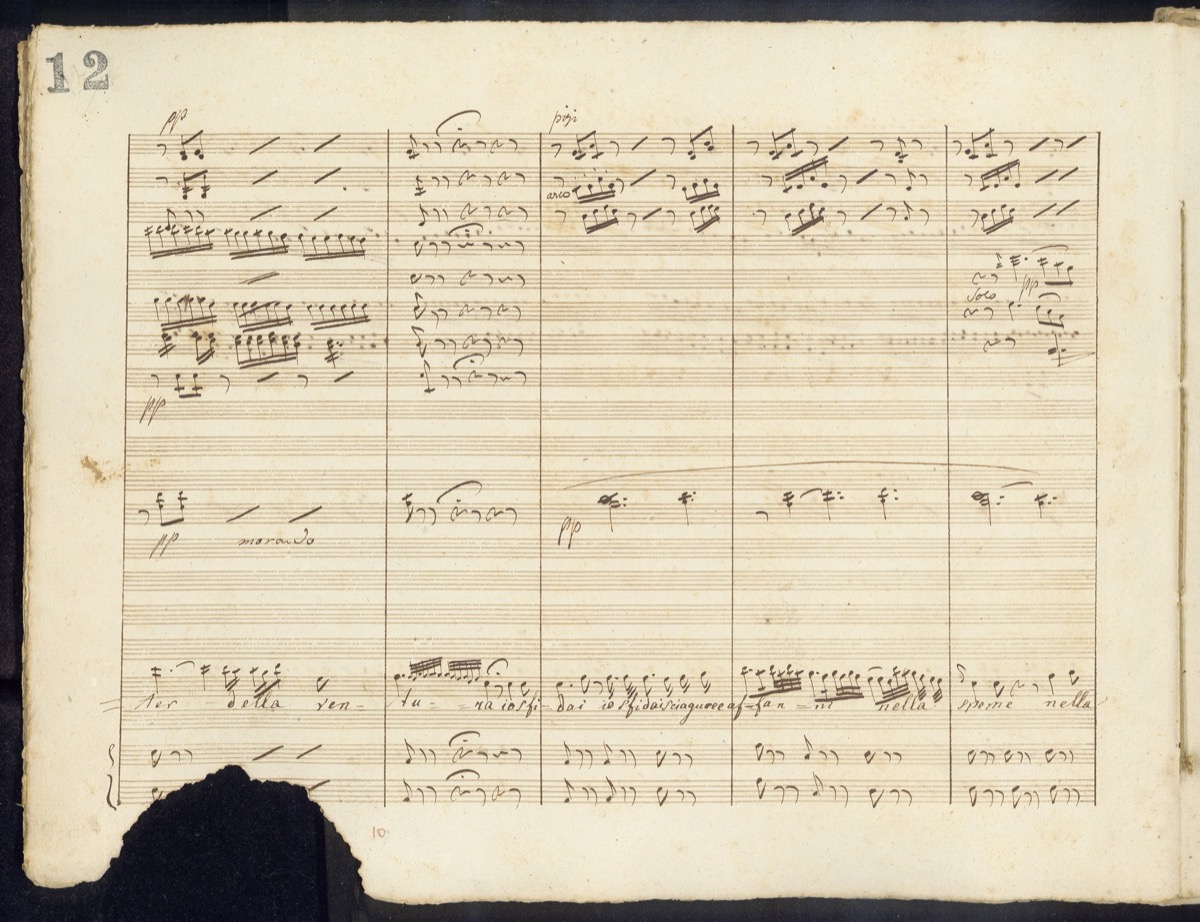 12
pp
arco
Solo
pp
pp
pp
pp
morando
ter della ven- tu- ra io sfi- dai io sfidai sciagure e af- fan- ni nella speme nella
10